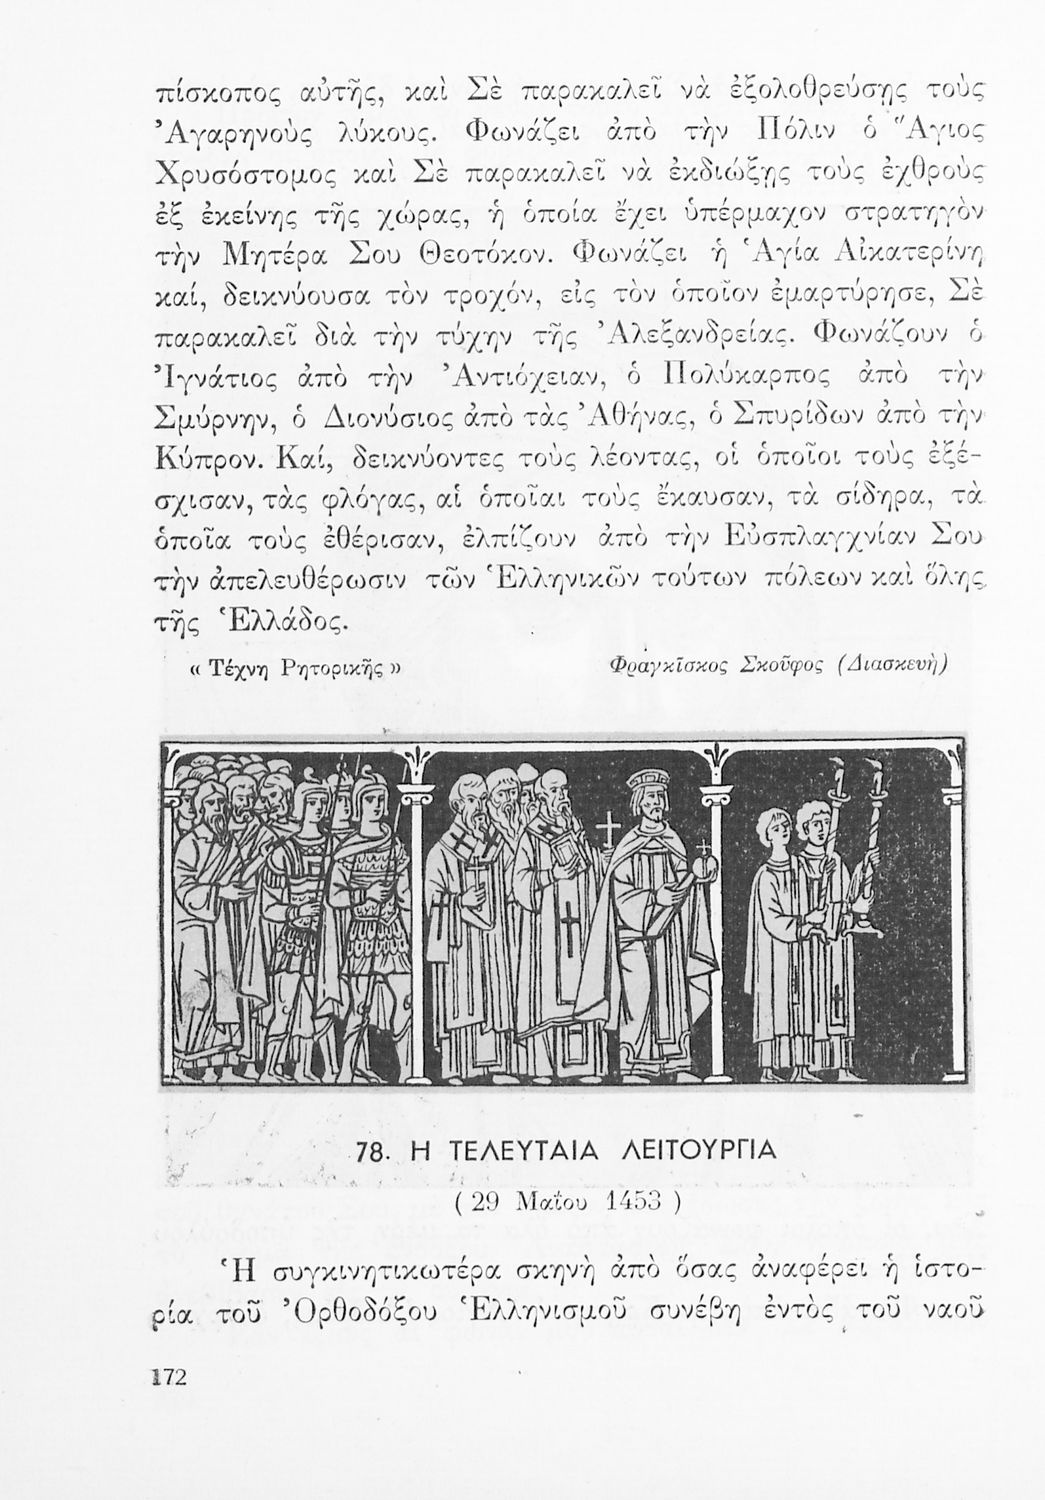 πίσκοπος αὐτῆς, καὶ Σὲ παρακαλεῖ νὰ ἐξολοθρεύσῃς τοὺς
Ἀγαρηνοὺς λύκους. Φωνάζει ἀπὸ τὴν Πόλιν ὁ Ἅγιος
Χρυσόστομος καὶ Σὲ παρακαλεῖ νὰ ἐκδιώξῃς τοὺς ἐχθροὺς
ἐξ ἐκείνης τῆς χώρας, ἡ ὁποία ἔχει ὑπέρμαχον στρατηγὸν
τὴν Μητέρα Σου Θεοτόκον. Φωνάζει ἡ Ἁγία Αἰκατερίνη
καί, δεικνύουσα τὸν τροχόν, εἰς τὸν ὁποῖον ἐμαρτύρησε, Σὲ
παρακαλεῖ διὰ τὴν τύχην τῆς Ἀλεξανδρείας. Φωνάζουν ὁ
Ἰγνάτιος ἀπὸ τὴν Ἀντιόχειαν, ὁ Πολύκαρπος ἀπὸ τὴν
Σμύρνην, ὁ Διονύσιος ἀπὸ τὰς Ἀθήνας, ὁ Σπυρίδων ἀπὸ τὴν
Κύπρον. Καί, δεικνύοντες τοὺς λέοντας, οἱ ὁποῖοι τοὺς ἐξέ-
σχισαν, τὰς φλόγας, αἱ ὁποῖαι τοὺς ἔκαυσαν, τὰ σίδηρα, τὰ
ὁποῖα τοὺς ἐθέρισαν, ἐλπίζουν ἀπὸ τὴν Εὐσπλαγχνίαν Σου
τὴν ἀπελευθέρωσιν τῶν Ἑλληνικῶν τούτων πόλεων καὶ ὅλης
τῆς Ἑλλάδος.
« Τέχνη Ρητορικῆς » Φραγκῖσκος Σκοῦφος (Διασκευὴ)
78. Η ΤΕΛΕΥΤΑΙΑ ΛΕΙΤΟΥΡΓΙΑ
( 29 Μαΐου 1453 )
Ἡ συγκινητικωτέρα σκηνὴ ἀπὸ ὅσας ἀναφέρει ἡ ἱστο-
ρία τοῦ Ὀρθοδόξου Ἑλληνισμοῦ συνέβη ἐντὸς τοῦ ναοῦ
172